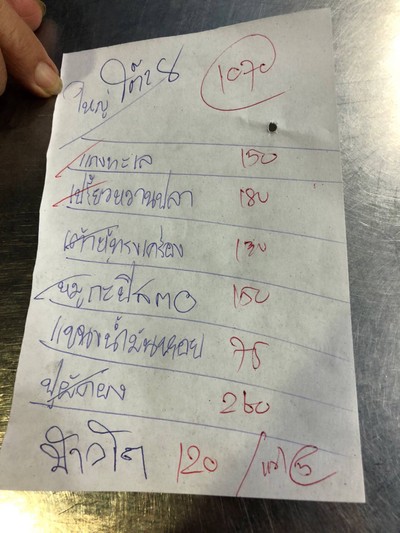 ใหญ่ โต๊ะ 8 1070
แกงทะเล 150
เปรี้ยวหวานปลา 180
เต้าหู้ทรงเครื่อง 130
หมูกะปิสตอ 150
แขนงน้ำมันหอย 75
ปูผัดผง 260
ข้าวโถ 120